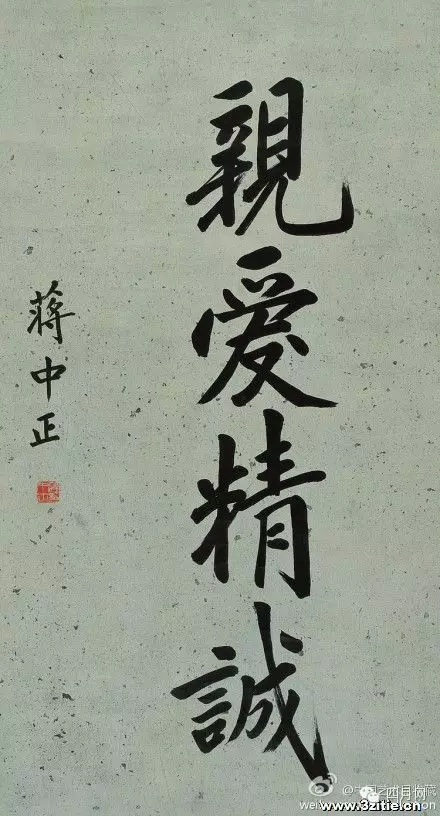 親爱精誠
蒋中正
西月网
www.3zitie.cn